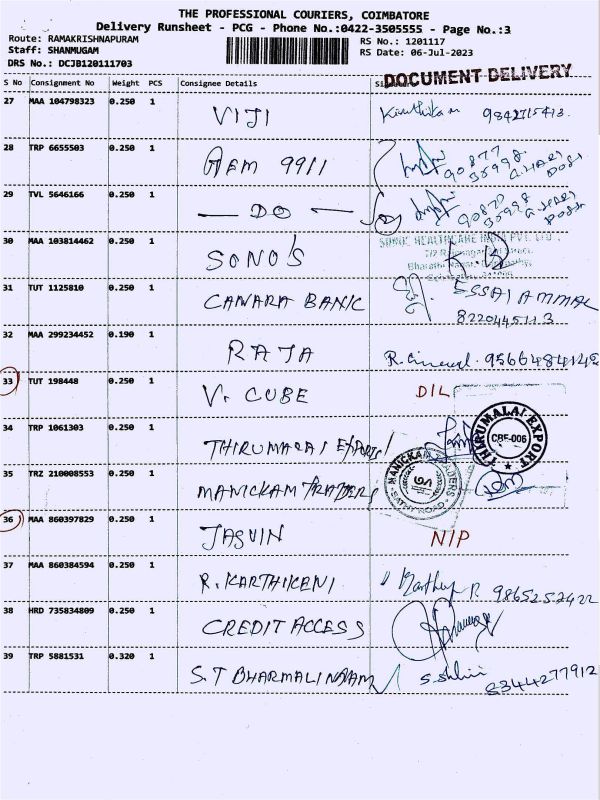 THE PROFESSIONAL COURIERS, COIMBATORE
Delivery Runsheet - PCG - Phone No.:0422-3505555 - Page No.:3
Route: RAMAKRISHNAPURAM
RS No.: 1201117
Staff: SHANMUGAM
RS Date: 06-Jul-2023
DRS No.: DCJB120111703
DOCUMENT DELIVERY
S No Consignment No Weight PCS Consignee Details
27 MAA 104798323 0.250 1 VIJI
28 TRP 6655503 0.250 1 GEM 9911
29 TVL 5646166 0.250 1 — DO —
30 MAA 103814462 0.250 1 SONO'S
SONIC HEALTHCARE INDIA PVT. LTD.
31 TUT 1125810 0.250 1 CANARA BANK ESSAI AMMAL
8220445113
32 MAA 299234452 0.190 1 RAJA 9566484142
33 TUT 198448 0.250 1 V. CUBE DIL
34 TRP 1061303 0.250 1 THIRUMALAI EXPORTS
THIRUMALAI EXPORT
CBE-006
35 TRZ 210008553 0.250 1 MANICKAM TRADERS
MANICKAM TRADERS
SATHY ROAD
36 MAA 860397829 0.250 1 JASVIN N/P
37 MAA 860384594 0.250 1 R. KARTHIKENI 9865252422
38 HRD 735834809 0.250 1 CREDIT ACCESS
39 TRP 5881531 0.320 1 S.T BHARMALINGAM 8344277912